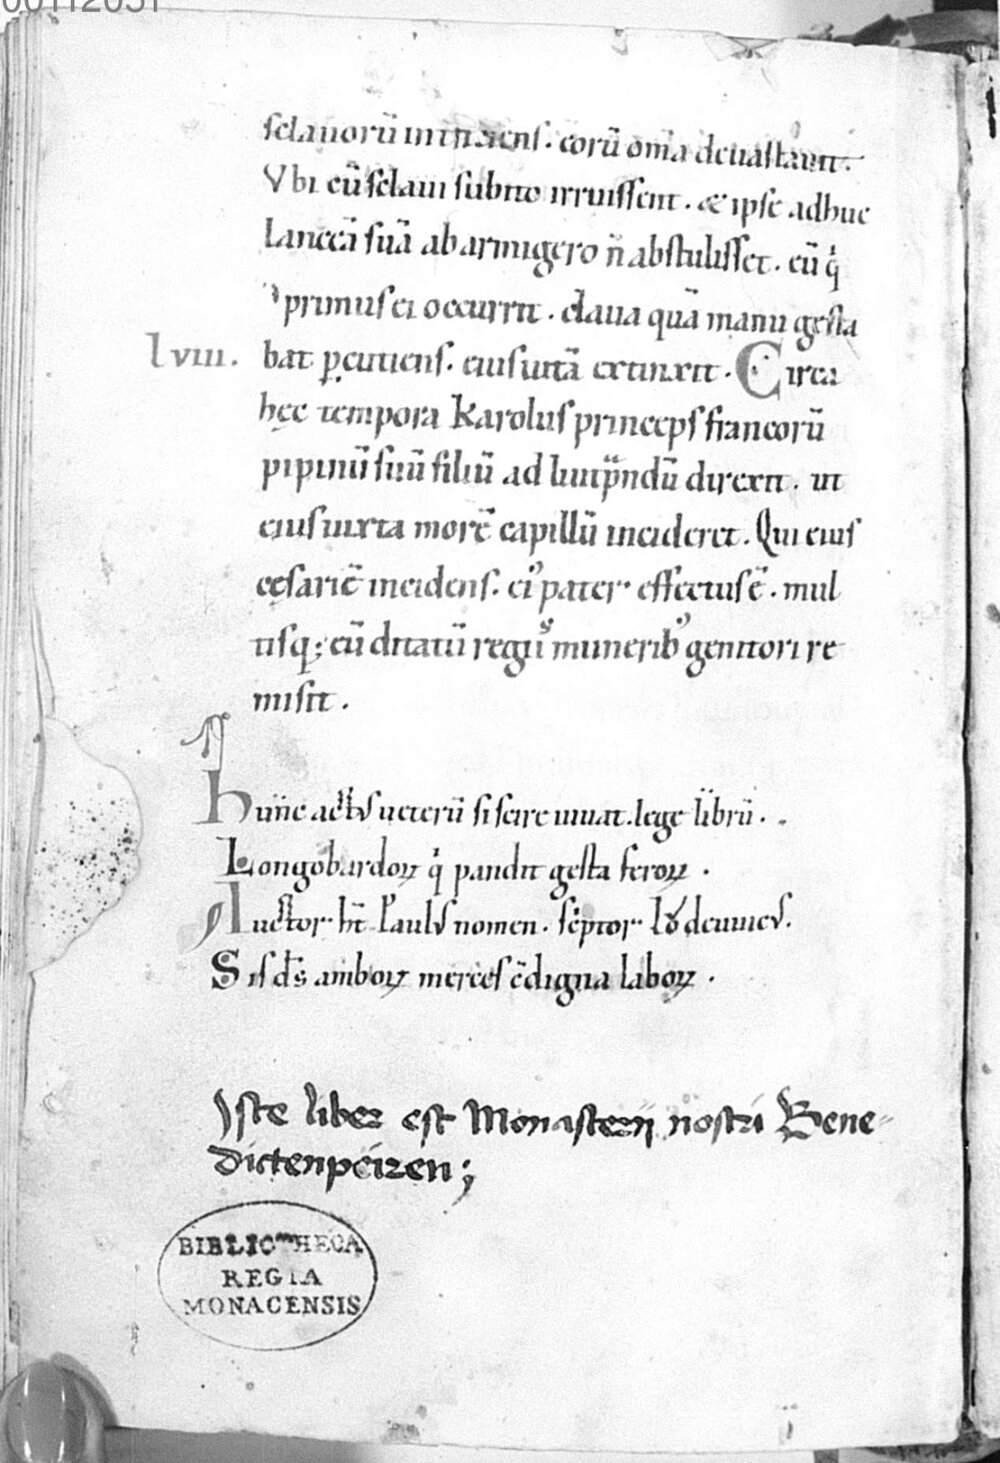 00112051
sclauorū intrasens. eorū om̄a deuastauit.
Vbi cū sclaui subito irruissent. & ipse adhuc
lanceā suā ab armigero n̄ abstulisset. eū q̇
primus ei occurrit. claua quā manu gesta
lviii. bat ꝑcutiens. eius uitā extinxit. Circa
hęc tempora karolus princeps francorū
pipinū suū filiū ad liutp̄ndū direxit. ut
eius iuxta morē capillū incideret. Qui eius
cęsariē incidens. eiꝰ pater effectus ē. mul
tisq; eū ditatū regiis munerib⁹ genitori re
misit.
Hunc actus ueterū si scire iuuat. lege librū.
Longobardoꝝ q̇ pandit gesta feroꝝ.
Auctor ht̄ Paulus nomen. sc̄ptor
Sis ds̄ amboꝝ merces c̄digna laboꝝ.
Iste liber est Monasterij nostri Bene-
dictenpeizen;
BIBLIOTHECA
REGIA
MONACENSIS